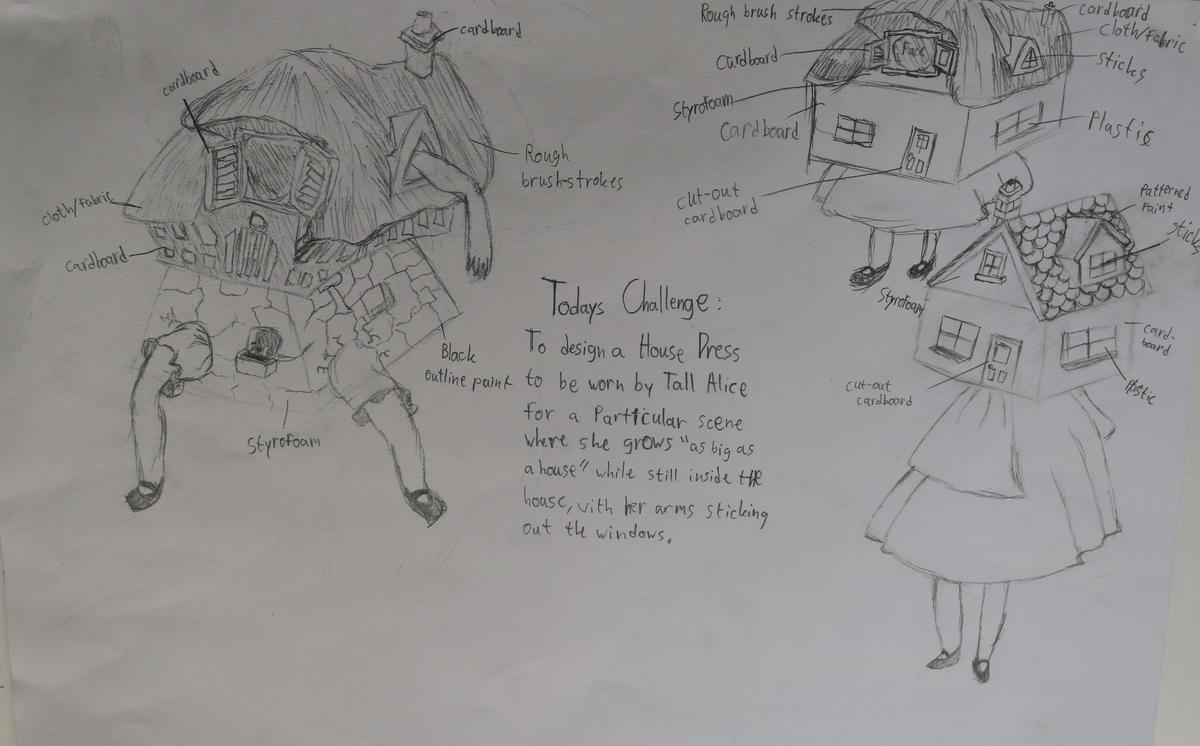 cardboard
cardboard
cloth/fabric
cardboard
Rough
brush-strokes
Black
outline paint
Styrofoam
Todays Challenge:
To design a House Dress
to be worn by Tall Alice
for a Particular scene
where she grows "as big as
a house" while still inside the
house, with her arms sticking
out the windows.
Rough brush strokes
Cardboard
Styrofoam
Cardboard
cut-out
cardboard
Face
cardboard
cloth/fabric
sticks
Plastic
Patterned
Paint
sticks
Styrofoam
card-
board
cut-out
cardboard
Plastic